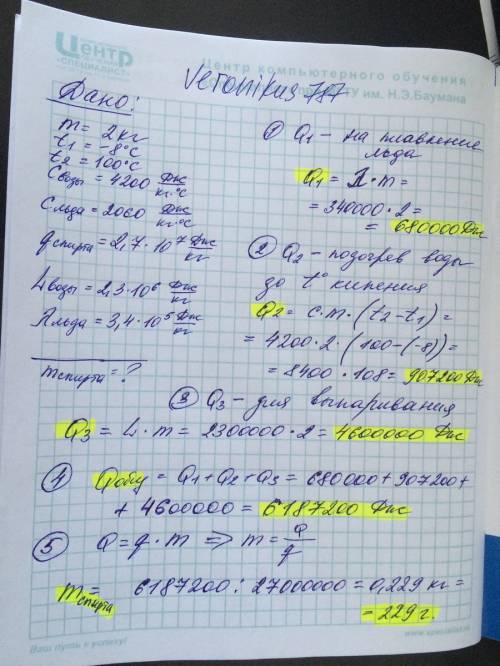 Центр
"СПЕЦИАЛИСТ"
Центр компьютерного обучения
им. Н.Э.Баумана
Veronikus 787
Дано:
m = 2 кг
t1 = -8°C
t2 = 100°C
Cводы = 4200 Дж/кг·°C
Cльда = 2060 Дж/кг·°C
qспирта = 2,7·10⁷ Дж/кг
Lводы = 2,3·10⁶ Дж/кг
λльда = 3,4·10⁵ Дж/кг
mспирта = ?
① Q1 – на плавление
льда
Q1 = λ·m =
= 340000·2 =
= 680000 Дж
② Q2 – подогрев воды
до t° кипения
Q2 = c·m·(t2-t1) =
= 4200·2·(100-(-8)) =
= 8400·108 = 907200 Дж
③ Q3 – для выпаривания
Q3 = L·m = 2300000·2 = 4600000 Дж
④ Qобщ = Q1+Q2+Q3 = 680000+907200+
+ 4600000 = 6187200 Дж
⑤ Q = q·m => m = Q/q
mспирта = 6187200 : 27000000 = 0,229 кг =
= 229 г.
Ваш путь к успеху!